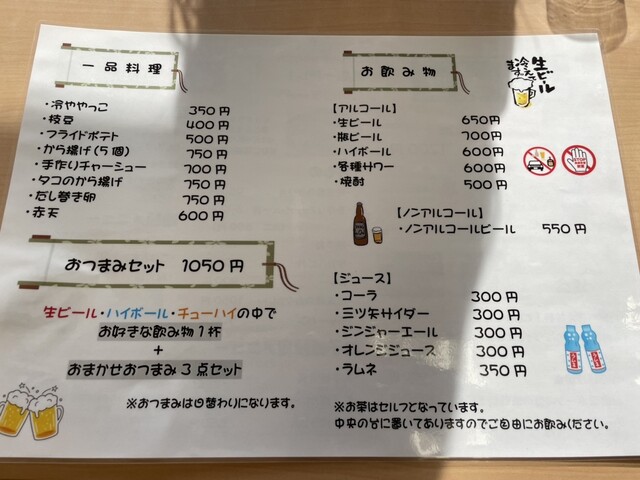 一品料理
・冷ややっこ 350円
・枝豆 400円
・フライドポテト 500円
・から揚げ(5個) 750円
・手作りチャーシュー 700円
・タコのから揚げ 750円
・だし巻き卵 750円
・赤天 600円
おつまみセット 1050円
生ビール・ハイボール・チューハイの中で
お好きな飲み物1杯
+
おまかせおつまみ3点セット
※おつまみは日替わりになります。
お飲み物
生ビール
冷えてます
【アルコール】
・生ビール 650円
・瓶ビール 700円
・ハイボール 600円
・各種サワー 600円
・焼酎 500円
【ノンアルコール】
・ノンアルコールビール 550円
【ジュース】
・コーラ 300円
・三ツ矢サイダー 300円
・ジンジャーエール 300円
・オレンジジュース 300円
・ラムネ 350円
※お茶はセルフとなっています。
中央の台に置いてありますのでご自由にお飲みください。